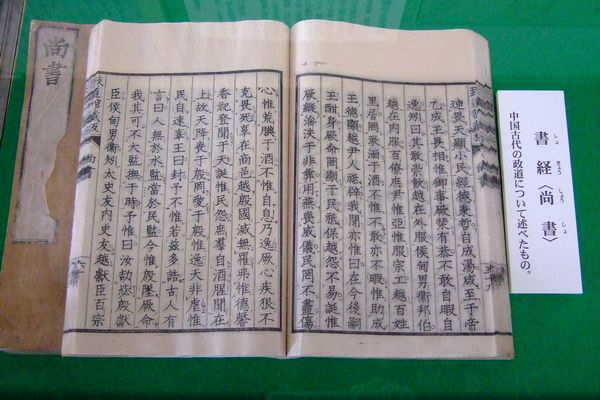 尚書
迪畏天顯小民經德秉哲自成湯咸至于帝
乙成王畏相惟御事厥棐有恭不敢自暇自
逸矧曰其敢崇飲越在外服侯甸男衛邦伯
越在內服百僚庶尹惟亞惟服宗工越百姓
里居罔敢湎于酒不惟不敢亦不暇惟助成
王德顯越尹人祗辟我聞亦惟曰在今後嗣
王酣身厥命罔顯于民祗保越怨不易誕惟
厥縱淫泆于非彝用燕喪威儀民罔不衋傷
心惟荒腆于酒不惟自息乃逸厥心疾很不
克畏死辜在商邑越殷國滅無罹弗惟德馨
香祀登聞于天誕惟民怨庶羣自酒腥聞在
上故天降喪于殷罔愛于殷惟逸天非虐惟
民自速辜王曰封予不惟若茲多誥古人有
言曰人無於水監當於民監今惟殷墜厥命
我其可不大監撫于時予惟曰汝劼毖殷獻
臣侯甸男衛矧太史友內史友越獻臣百宗
致道館藏版 尚書
書経〈尚書〉
しょ きょう しょう しょ
中国古代の政道について述べたもの。